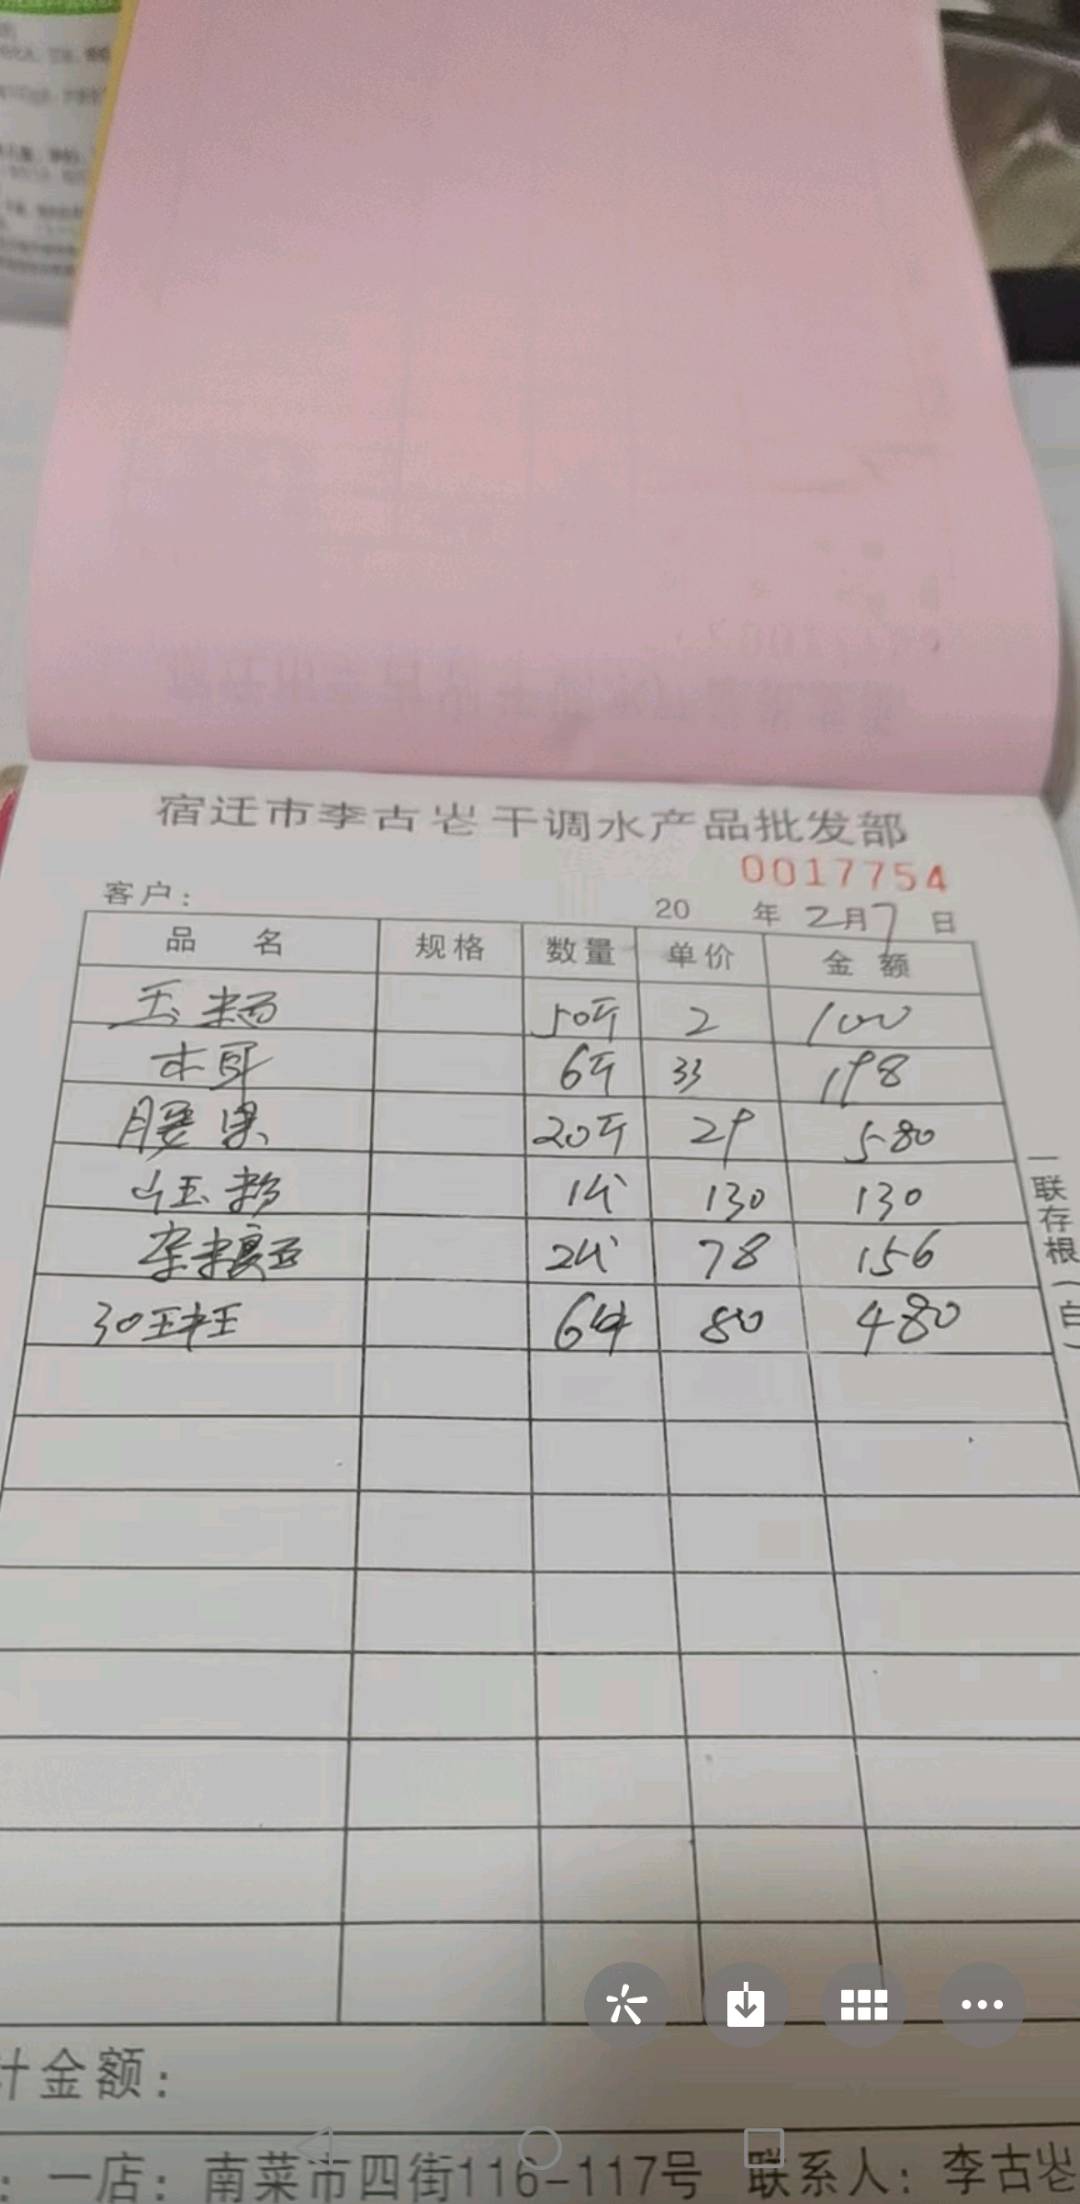 宿迁市李古岜干调水产品批发部
0017754
客户：
20 年 2月7日
品名 规格 数量 单价 金额
玉米面 50斤 2 100
木耳 6斤 33 198
腰果 20斤 29 580
玉米粉 1代 130 130
杂粮面 2代 78 156
30 6件 80 480
一联存根（白）
计金额：
：一店：南菜市四街116-117号 联系人：李古岜